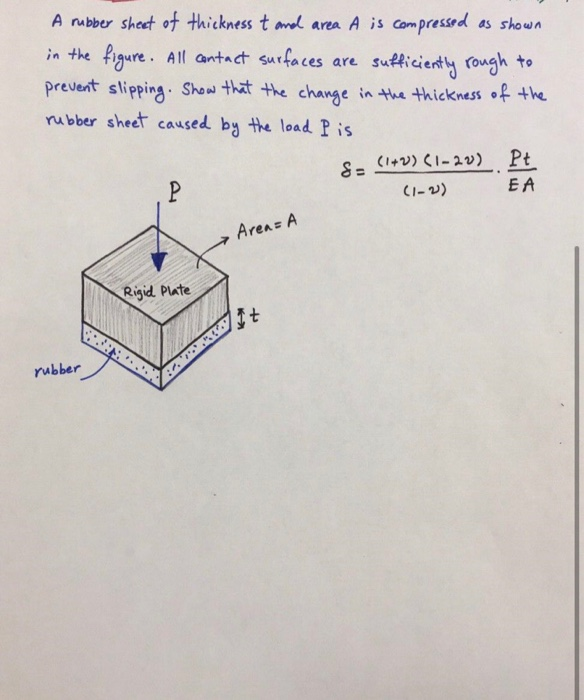 A rubber sheet of thickness t and area A is compressed as shown
in the figure. All contact surfaces are sufficiently rough to
prevent slipping. Show that the change in the thickness of the
rubber sheet caused by the load P is
δ = (1+ν) (1-2ν) / (1-ν) . Pt / EA
P
Area = A
Rigid Plate
t
rubber